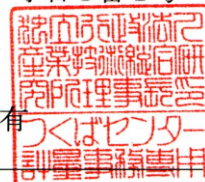 独立行政法人
産業技術総合研
究所理事長印
有
つくばセンター
計量事務専用